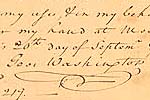 my use & in my beha
my hand at Mou
26th day of Septem
Geo: Washington
217.